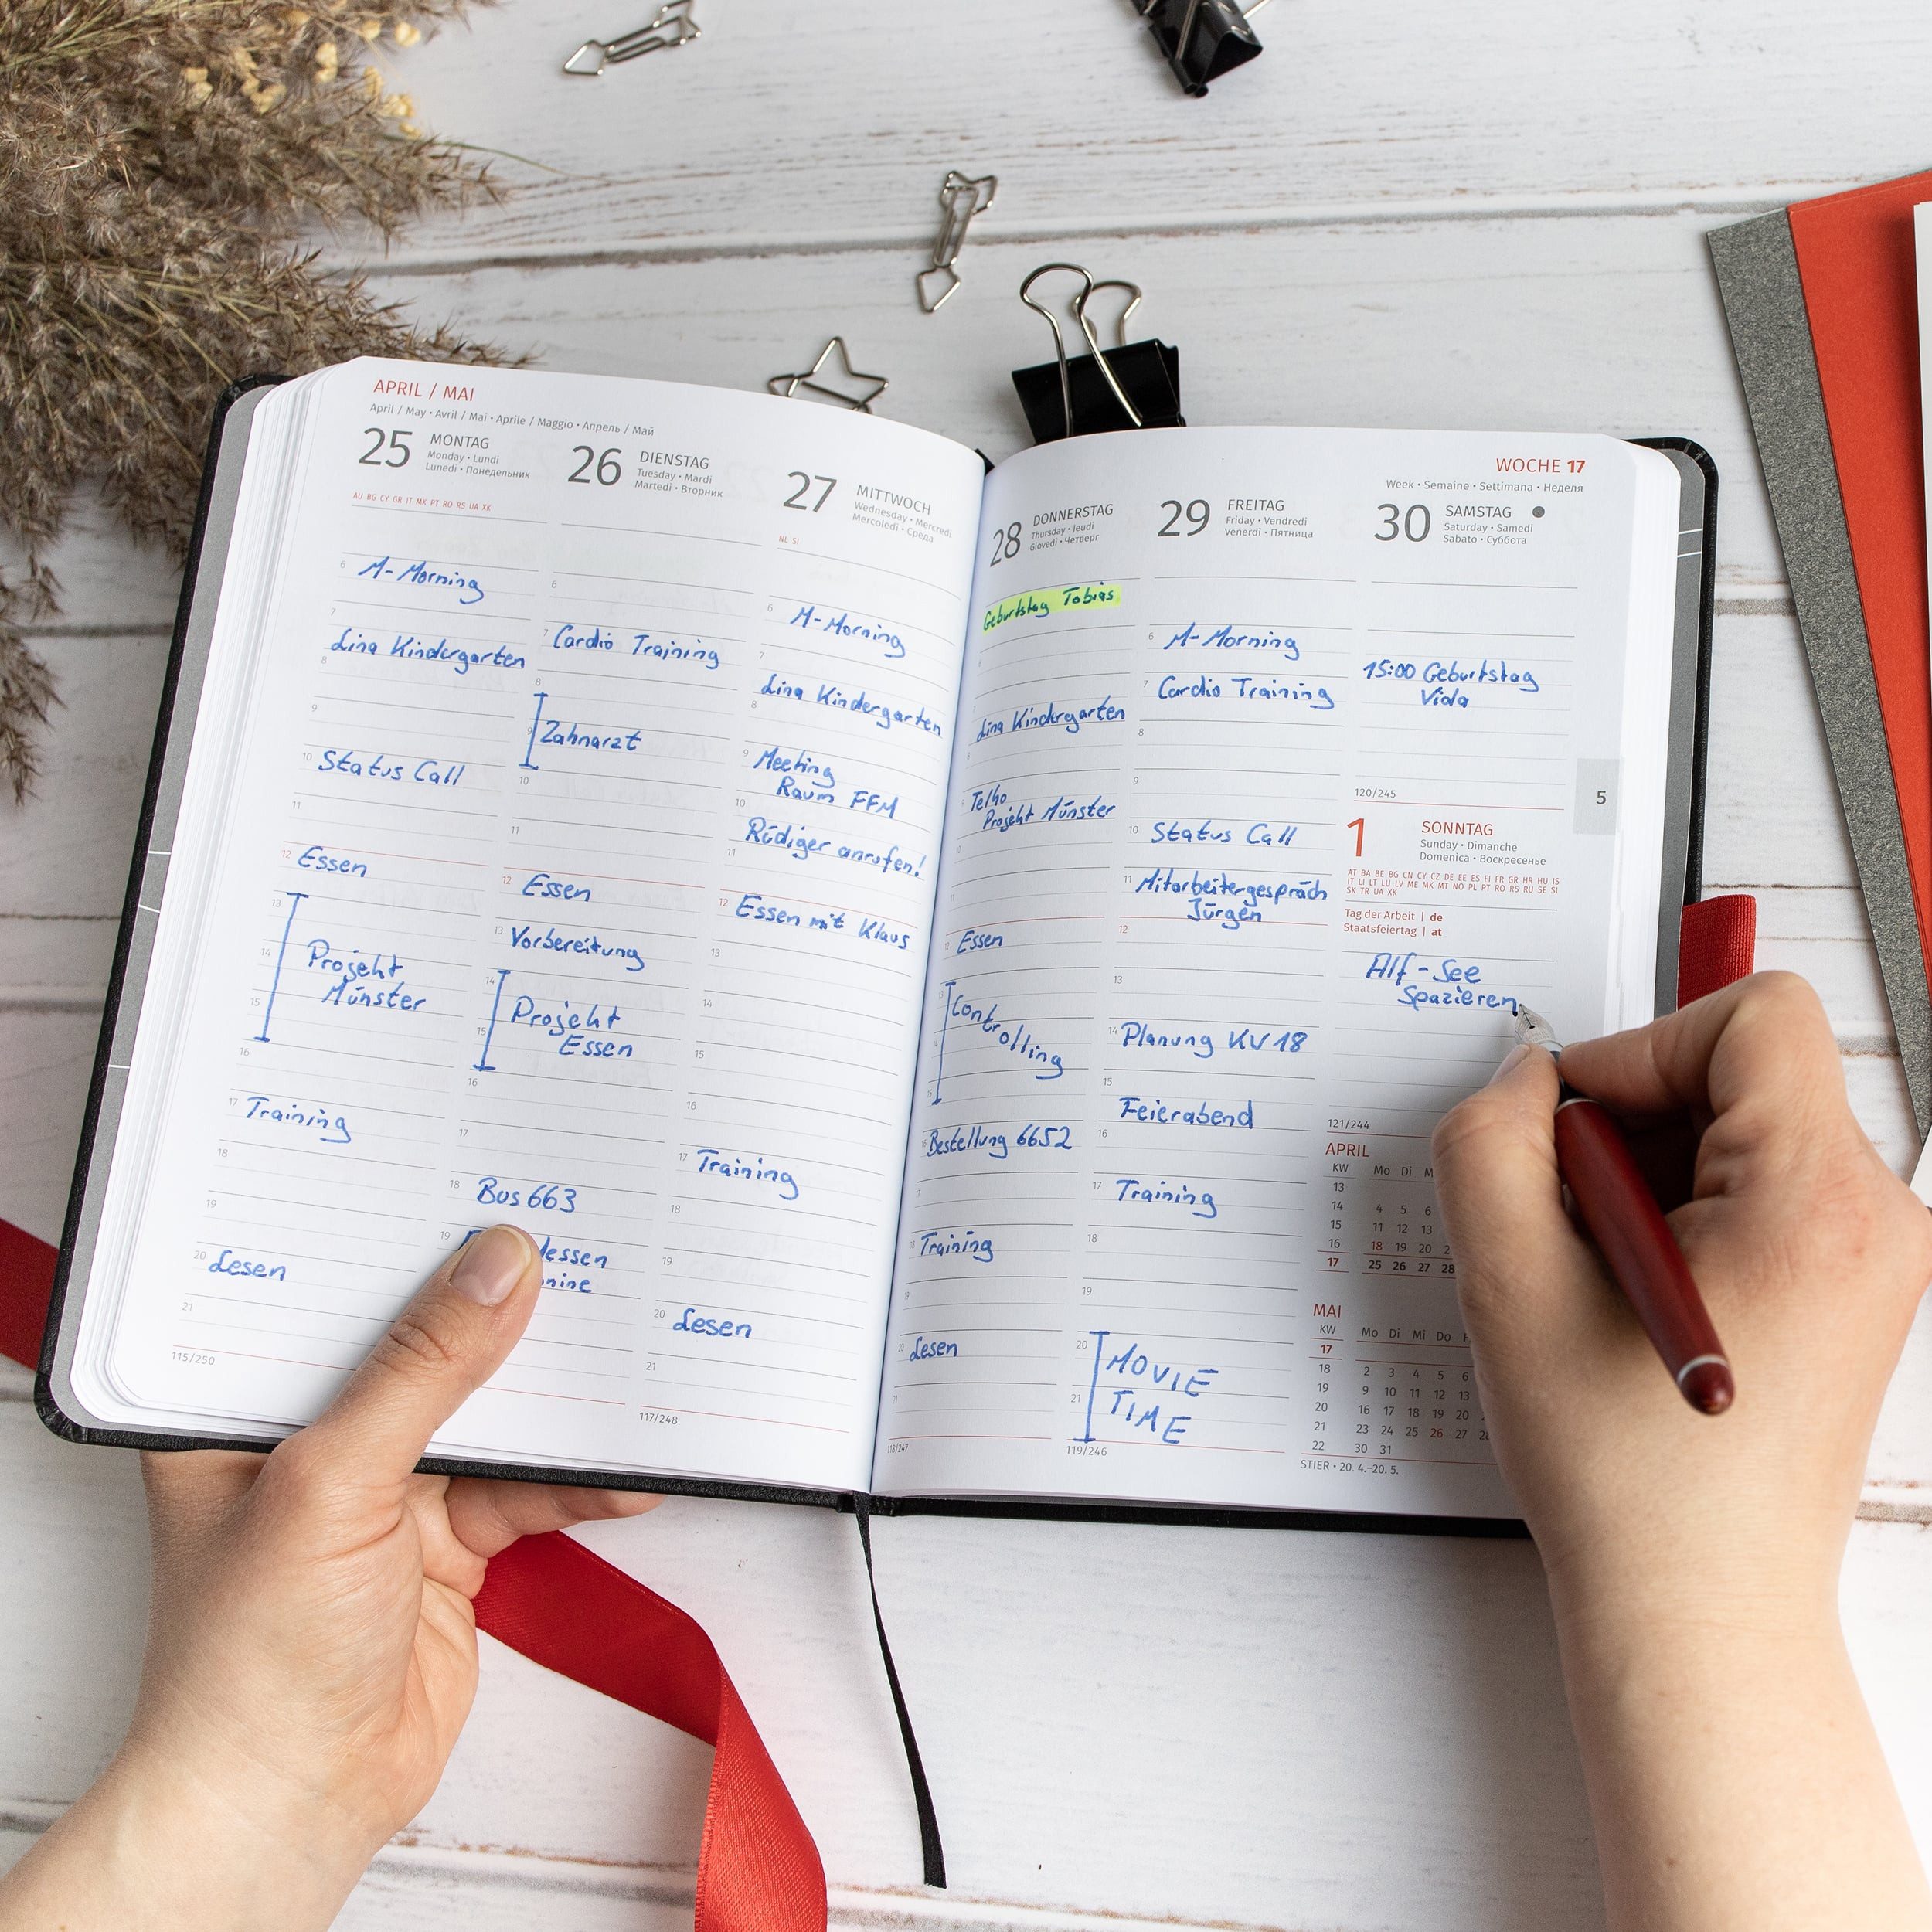 APRIL / MAI
April / May • Avril / Mai • Aprile / Maggio • Апрель / Май
25 MONTAG
Monday • Lundi
Lunedì • Понедельник
AU BG CY GR IT MK PT RO RS UA XK
6 M-Morning
7
Lina Kindergarten
8
9
10 Status Call
11
12 Essen
13
14 Projekt
Münster
15
16
17 Training
18
19
20 Lesen
21
115/250
26 DIENSTAG
Tuesday • Mardi
Martedì • Вторник
6
7 Cardio Training
8
9 Zahnarzt
10
11
12 Essen
13 Vorbereitung
14
Projekt
15 Essen
16
17
18 Bus 663
19
27 MITTWOCH
Wednesday • Mercredi
Mercoledì • Среда
NL SI
6 M-Morning
7
Lina Kindergarten
8
9 Meeting
Raum FFM
10
Rüdiger anrufen!
11
12 Essen mit Klaus
13
14
15
16
17 Training
18
19
20 Lesen
21
117/248
28 DONNERSTAG
Thursday • Jeudi
Giovedì • Четверг
Geburtstag Tobias
Lina Kindergarten
Telko
Projekt Münster
Essen
Controlling
Bestellung 6652
17
18 Training
19
20 Lesen
21
118/247
WOCHE 17
Week • Semaine • Settimana • Неделя
29 FREITAG
Friday • Vendredi
Venerdì • Пятница
6 M-Morning
7 Cardio Training
8
9
10 Status Call
11 Mitarbeitergespräch
Jürgen
12
13
14 Planung KV 18
15
Feierabend
16
17 Training
18
19
20 MOVIE
21 TIME
119/246
30 SAMSTAG
Saturday • Samedi
Sabato • Суббота
15:00 Geburtstag
Viola
120/245
5
1 SONNTAG
Sunday • Dimanche
Domenica • Воскресенье
AT BA BE BG CN CY CZ DE EE ES FI FR GR HR HU IS
IT LI LT LU LV ME MK MT NO PL PT RO RS RU SE SI
SK TR UA XK
Tag der Arbeit | de
Staatsfeiertag | at
Alf-See
Spazieren
121/244
APRIL
KW Mo Di
13
14 4 5 6
15 11 12 13
16 18 19 20
17 25 26 27 28
MAI
KW Mo Di Mi Do
17
18 2 3 4 5 6
19 9 10 11 12 13
20 16 17 18 19 20
21 23 24 25 26 27
22 30 31
STIER • 20. 4.–20. 5.